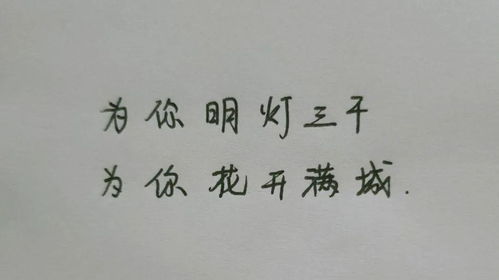 为你明灯三千
为你花开满城.